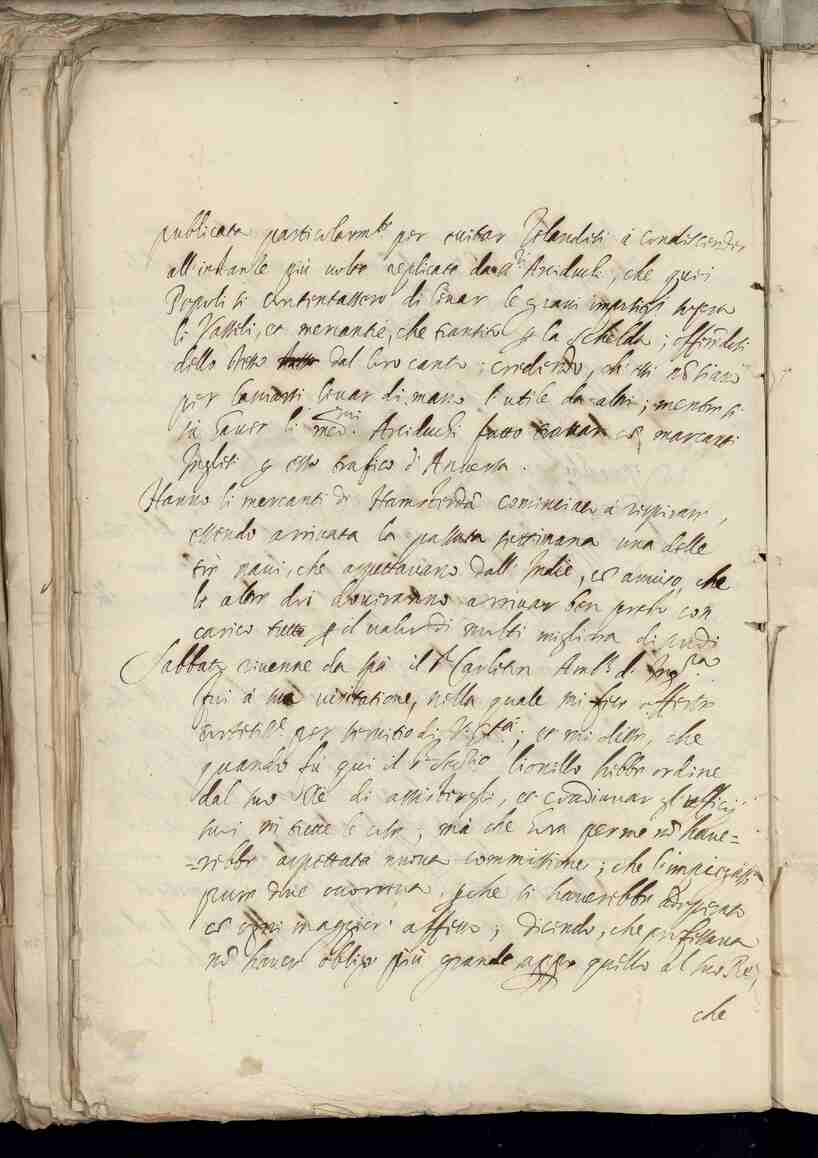 publicata particolarm.te per evitar Zelandesi à condiscender
all'instanze più volte replicate da' SS.ri Arciduchi, che quei
Popoli si contentassero di levar le gravi impositioni sopra
li Vasselli, et mercantie, che transitano p la Schelda; offerendosi
dello stesso dal loro canto; credendo, ch'essi nõ siano
per lasciarsi levar di mano l'utile da altri; mentre si
sà haver li med.mi Arciduchi fatto trattar co' mercanti
Inglesi p esso trafico d'Anversa.
Hanno li mercanti di Hamsterdã cominciato à respirare,
essendo arrivata la passata settimana una delle
trè navi, che aspettavano dall'Indie, et aviso, che
le altre due doveranno arrivar ben presto con
carico tutte p il valor di molti migliara di scudi
Sabbato rivenne da Spà il S.r Carleton Amb.r d'Ing.ra
fui à sua visitatione, nella quale mi fece offerte
per servitio di V. Ser.tà; et mi disse, che
quando fù qui il S.r Chr.mo Lionello hebbe ordine
dal suo Rè di assisterli, et coadiuvar gl'ufficij
suoi in tutte le cose; mà che hora per me nõ have=
=rebbe aspettata nuova commissione; che l'impiegassi
pure dove occorreva, pche si haverebbe adoperato
co' ogni maggior affetto; dicendo, che professava
nõ haver obligo più grande appo quello al suo Rè,
che